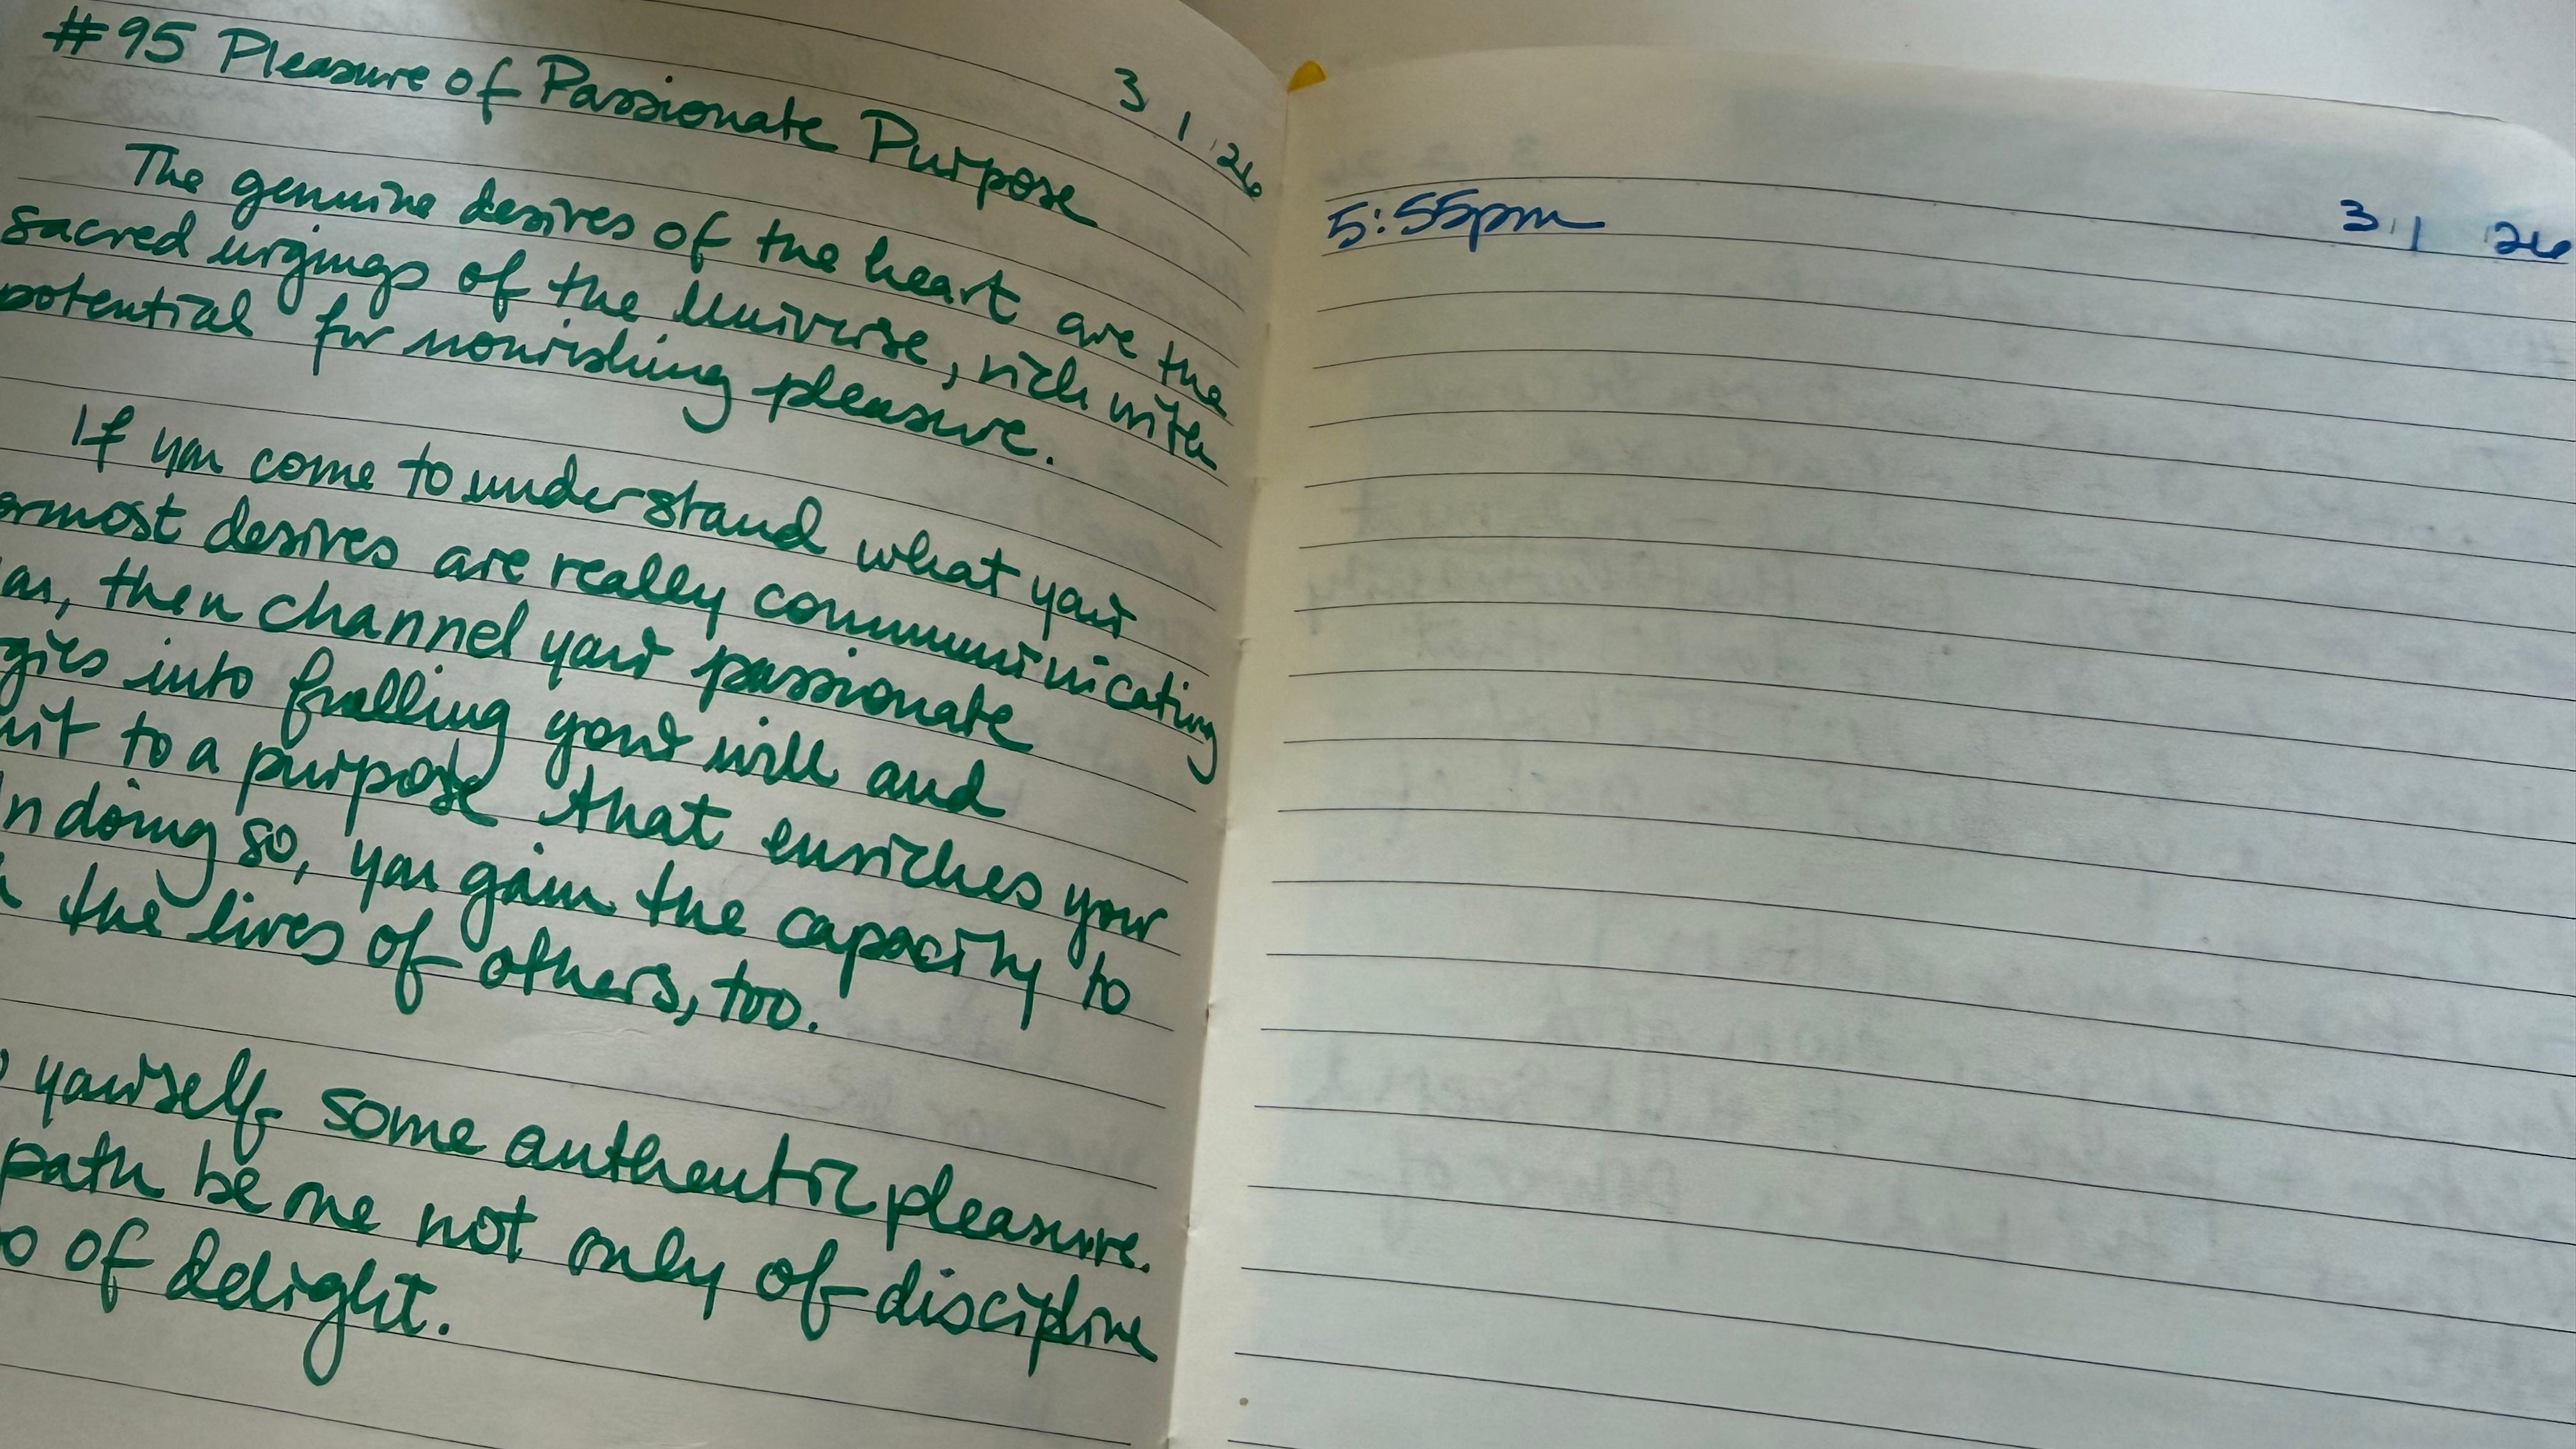 #95 Pleasure of Passionate Purpose
3 1 26
The genuine desires of the heart are the
sacred urgings of the Universe, rich with
potential for nourishing pleasure.
If you come to understand what your
ermost desires are really communicating
then channel your passionate
gies into fuelling your will and
to a purpose that enriches your
n doing so, you gain the capacity to
the lives of others, too.
yourself some authentic pleasure.
path be one not only of discipline
o of delight.
5:55pm
3 1 26